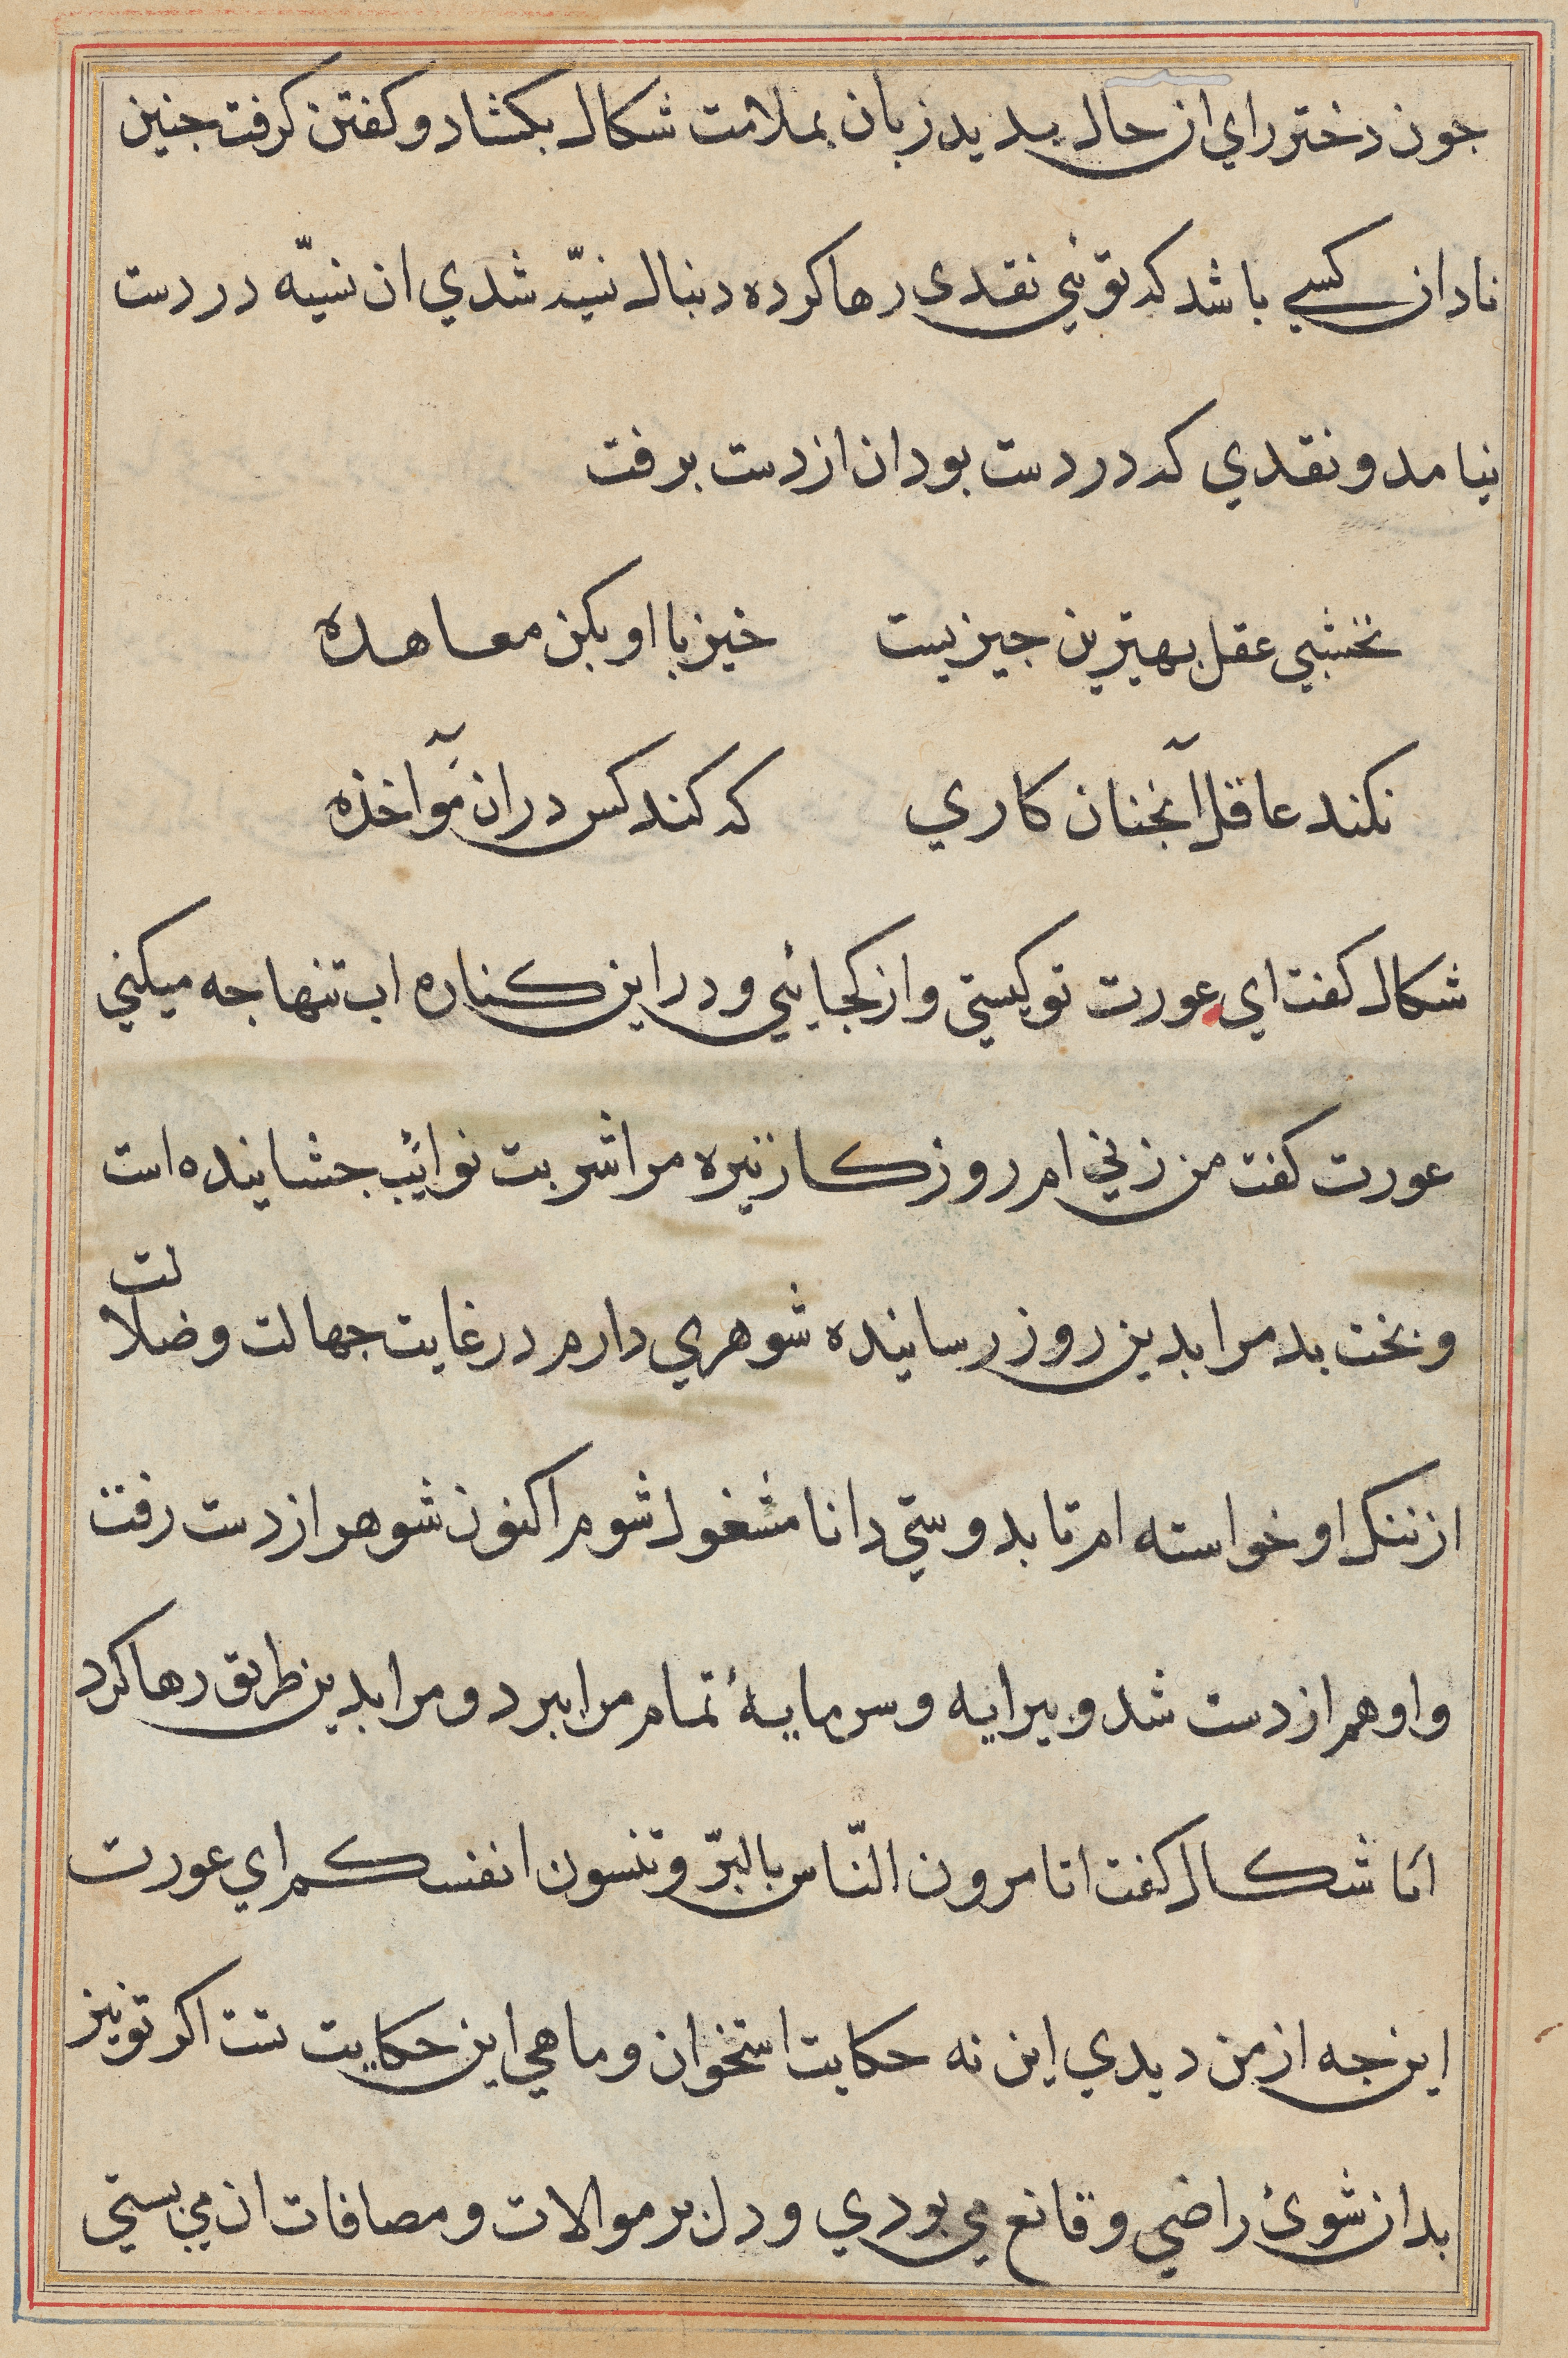 جون دختر راي ان حال بديد زبان بملامت شكال بكشاد و كفتن كرفت جنين
نادان كسي باشد كه توئي نقدى رها كرده دنبال نسيّه شدي ان نسيّه در دست
نيامد و نقدي كه در دست بود ان از دست برفت
نخشبي عقل بهترين جيزيست خيز با او بكن معاهده
نكند عاقل آنجنان كاري كه كند كس دران مؤآخذه
شكال كفت اي عورت تو كيستي و از كجائي و در اين كناره اب تنها جه ميكني
عورت كفت من زني ام روزكار تيره مرا شربت نوائب جشاينده است
و بخت بد مرا بدين روز رسانيده شوهري دارم در غايت جهالت و ضلالت
از ننك او خواسته ام تا بدوستي دانا مشغول شوم اكنون شوهر از دست رفت
و او هم از دست شد و بيرايه و سرمايهٔ تمام مرا ببرد و مرا بدين طريق رها كرد
امّا شكال كفت اتامرون النّاس بالبرّ و تنسون انفسكم اي عورت
اين جه از من ديدي اين نه حكايت استخوان و ماهي اين حكايت تست اكر تو نيز
بدان شوئ راضي و قانع مي بودي و دل بر موالات و مصافات ان مي بستي